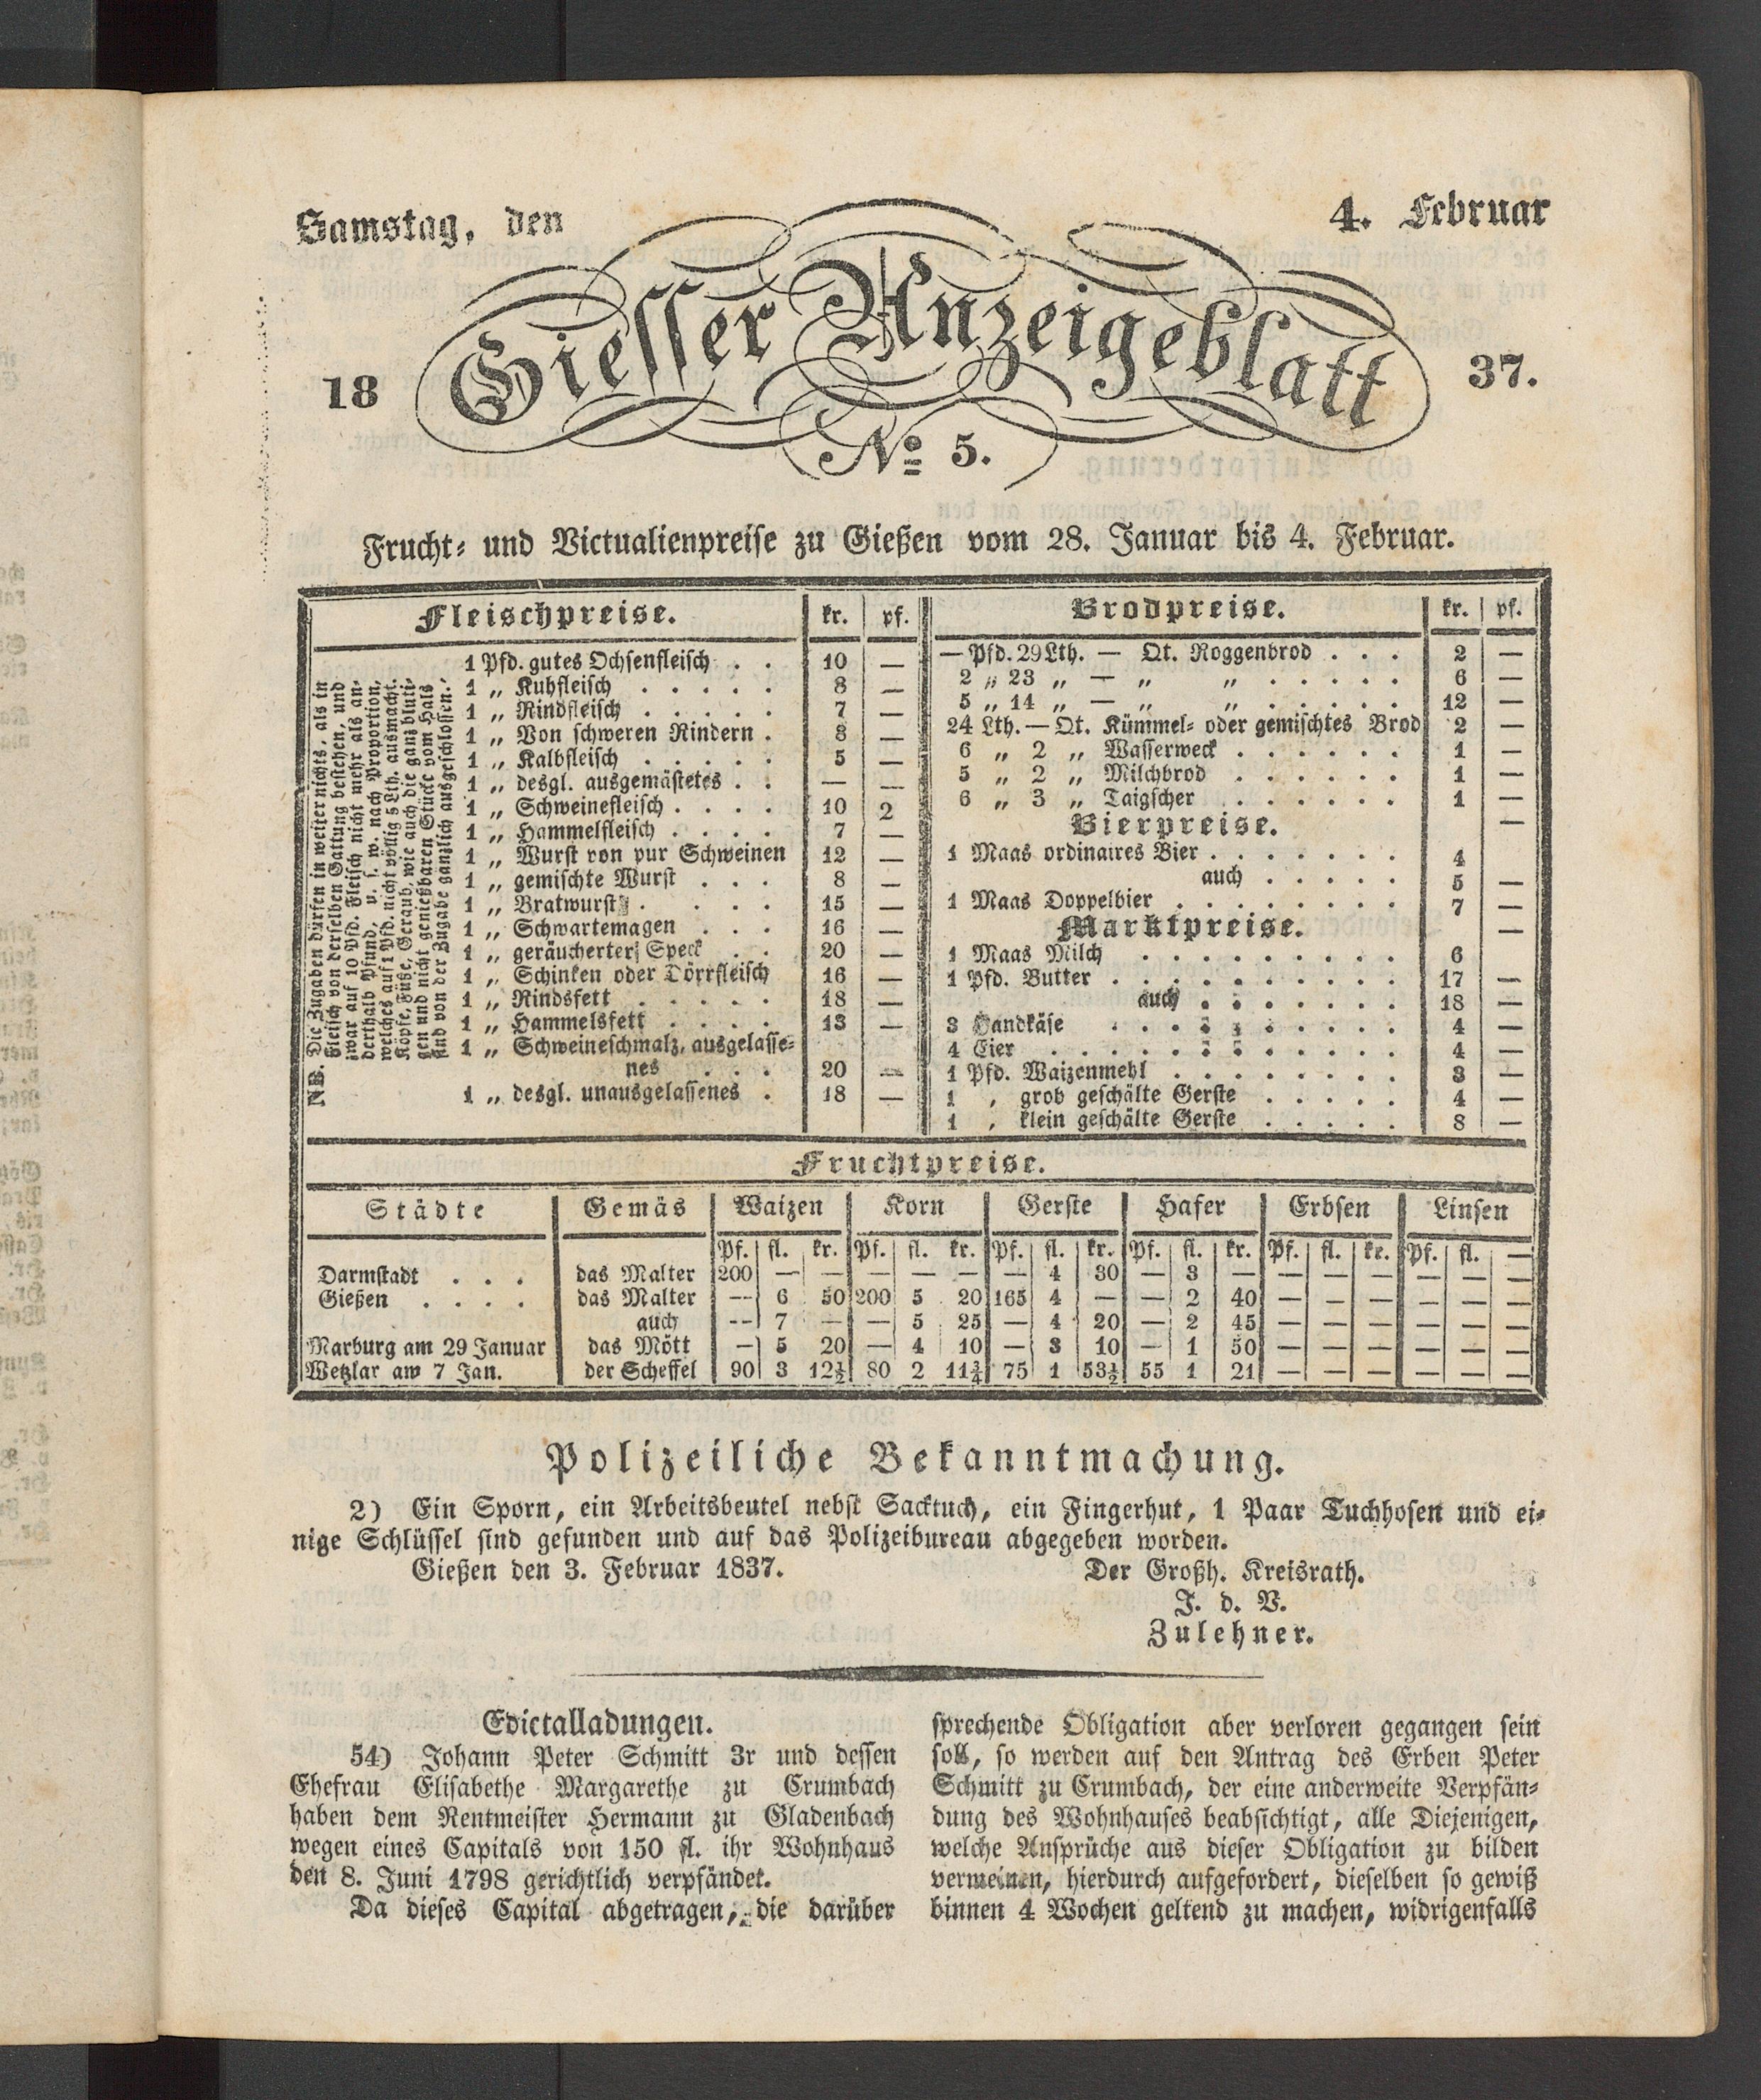 Samstag, den 4. Februar
Giesser Anzeigeblatt
18 37.
No 5.
Frucht- und Victualienpreise zu Gießen vom 28. Januar bis 4. Februar.
Fleischpreise. kr. pf.
1 Pfd. gutes Ochsenfleisch . . 10 —
1 „ Kuhfleisch . . . . . 8 —
1 „ Rindfleisch . . . . . 7 —
1 „ Von schweren Rindern . 8 —
1 „ Kalbfleisch . . . . . 5 —
1 „ desgl. ausgemästetes . . — —
1 „ Schweinefleisch . . . . 10 2
1 „ Hammelfleisch . . . . 7 —
1 „ Wurst von pur Schweinen 12 —
1 „ gemischte Wurst . . . 8 —
1 „ Bratwurst . . . . 15 —
1 „ Schwartemagen . . . 16 —
1 „ geräucherter Speck . . 20 —
1 „ Schinken oder Dörrfleisch 16 —
1 „ Rindsfett . . . . . 18 —
1 „ Hammelsfett . . . . 13 —
1 „ Schweineschmalz, ausgelasse-
nes . . . 20 —
1 „ desgl. unausgelassenes . 18 —
NB. Die Zugaben dürfen in weiter nichts, als in
Fleisch von derselben Gattung bestehen, und
zwar auf 10 Pfd. Fleisch nicht mehr als an-
derthalb Pfund, u. s. w. nach Proportion,
welches auf 1 Pfd. nicht völlig 5 Lth. ausmacht.
Köpfe, Füße, Geraub, wie auch die ganz bluti-
gen und nicht genießbaren Stücke vom Hals
sind von der Zugabe gänzlich ausgeschlossen.
Brodpreise. kr. pf.
— Pfd. 29 Lth. — Qt. Roggenbrod . . . 2 —
2 „ 23 „ — „ „ . . . . . 6 —
5 „ 14 „ — „ „ . . . . . 12 —
24 Lth. — Qt. Kümmel- oder gemischtes Brod 2 —
6 „ 2 „ Wasserweck . . . . . . 1 —
5 „ 2 „ Milchbrod . . . . . . 1 —
6 „ 3 „ Taigscher . . . . . . 1 —
Bierpreise. —
1 Maas ordinaires Bier . . . . . . . 4
auch . . . . . 5 —
1 Maas Doppelbier . . . . . . . . 7 —
Marktpreise. —
1 Maas Milch . . . . . . . . . 6
1 Pfd. Butter . . . . . . . . . . 17 —
auch . . . . . . . 18 —
3 Handkäse . . . . . . . . . . 4 —
4 Eier . . . . . . . . . . . . 4 —
1 Pfd. Waizenmehl . . . . . . . . 3 —
1 „ grob geschälte Gerste . . . . . 4 —
1 „ klein geschälte Gerste . . . . . 8 —
Fruchtpreise.
Städte Gemäs Waizen Korn Gerste Hafer Erbsen Linsen
Pf. fl. kr. Pf. fl. kr. Pf. fl. kr. Pf. fl. kr. Pf. fl. kr. Pf. fl. —
Darmstadt . . . das Malter 200 — — — — — — 4 30 — 3 — — — — — — —
Gießen . . . . das Malter — 6 50 200 5 20 165 4 — — 2 40 — — — — — —
auch — 7 — — 5 25 — 4 20 — 2 45 — — — — — —
Marburg am 29 Januar das Mött — 5 20 — 4 10 — 3 10 — 1 50 — — — — — —
Wetzlar am 7 Jan. der Scheffel 90 3 12½ 80 2 11¾ 75 1 53½ 55 1 21 — — — — — —
Polizeiliche Bekanntmachung.
2) Ein Sporn, ein Arbeitsbeutel nebst Sacktuch, ein Fingerhut, 1 Paar Tuchhosen und ei-
nige Schlüssel sind gefunden und auf das Polizeibureau abgegeben worden.
Gießen den 3. Februar 1837. Der Großh. Kreisrath.
J. d. V.
Zulehner.
Edictalladungen.
54) Johann Peter Schmitt 3r und dessen
Ehefrau Elisabethe Margarethe zu Crumbach
haben dem Rentmeister Hermann zu Gladenbach
wegen eines Capitals von 150 fl. ihr Wohnhaus
den 8. Juni 1798 gerichtlich verpfändet.
Da dieses Capital abgetragen, die darüber
sprechende Obligation aber verloren gegangen sein
soll, so werden auf den Antrag des Erben Peter
Schmitt zu Crumbach, der eine anderweite Verpfän-
dung des Wohnhauses beabsichtigt, alle Diejenigen,
welche Ansprüche aus dieser Obligation zu bilden
vermeinen, hierdurch aufgefordert, dieselben so gewiß
binnen 4 Wochen geltend zu machen, widrigenfalls